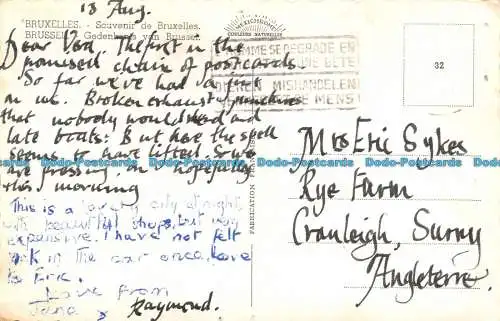 13 Aug.
BRUXELLES. - Souvenir de Bruxelles.
BRUSSEL. - Gedenkenis van Brussel.
Dear Vera, The first in the
promised chain of postcards.
So far we've had a
on us. Broken exhaust & punctures
that nobody would mend and
late boats: But here the spell
seems to have lifted. So we
are pressing on hopefully
this morning
This is a lovely city at night,
with beautiful shops, but very
expensive. I have not felt
sick in the car once, love
to Eric.
Love from
Jana x Raymond.
MEXICHROME
COULEURS NATURELLES
L'HOMME SE DEGRADE EN
UNE BETE
DIEREN MISHANDELEN
MENS
32
FABRICATION
Mrs Eric Sykes
Rye Farm
Cranleigh, Surrey
Angleterre.
Dodo-Postcards Dodo-Postcards Dodo-Postcards Dodo-Postcards